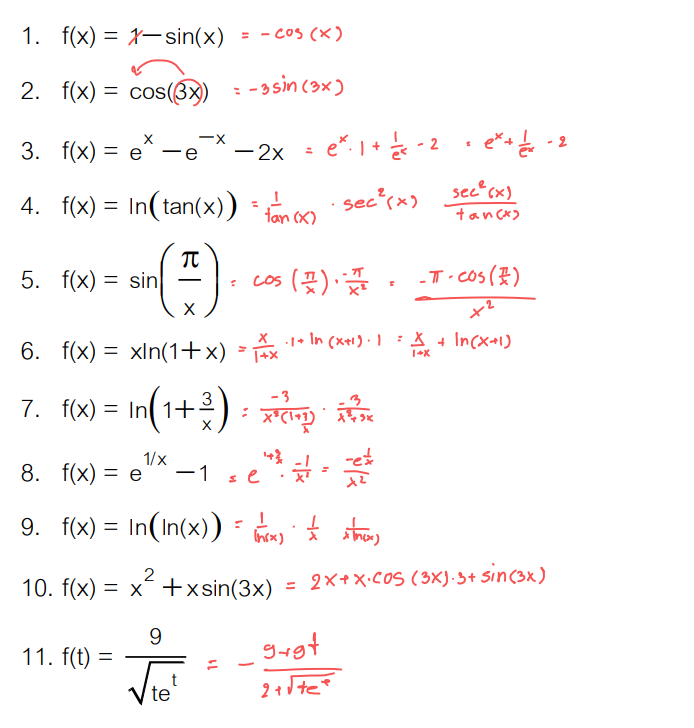 1. f(x) = 1 − sin(x) = - cos (x)
2. f(x) = cos(3x) = -3 sin (3x)
3. f(x) = e^x − e^−x − 2x = e^x · 1 + 1/e^x - 2 = e^x + 1/e^x - 2
4. f(x) = ln(tan(x)) = 1/tan(x) · sec²(x) sec²(x)/tan(x)
5. f(x) = sin(π/x) = cos(π/x) · -π/x² = -π · cos(π/x)/x²
6. f(x) = xln(1+x) = x/1+x · 1 + ln(x+1) · 1 = x/1+x + ln(x+1)
7. f(x) = ln(1+3/x) = -3/x²(1+3/x) · -3/x²+3x
8. f(x) = e^1/x − 1 = e · -1/x² = -e^1/x/x²
9. f(x) = ln(ln(x)) = 1/ln(x) · 1/x 1/xln(x)
10. f(x) = x² + xsin(3x) = 2x + x·cos (3x)·3 + sin(3x)
11. f(t) = 9/√te^t = - 9+9t/2+√te^t